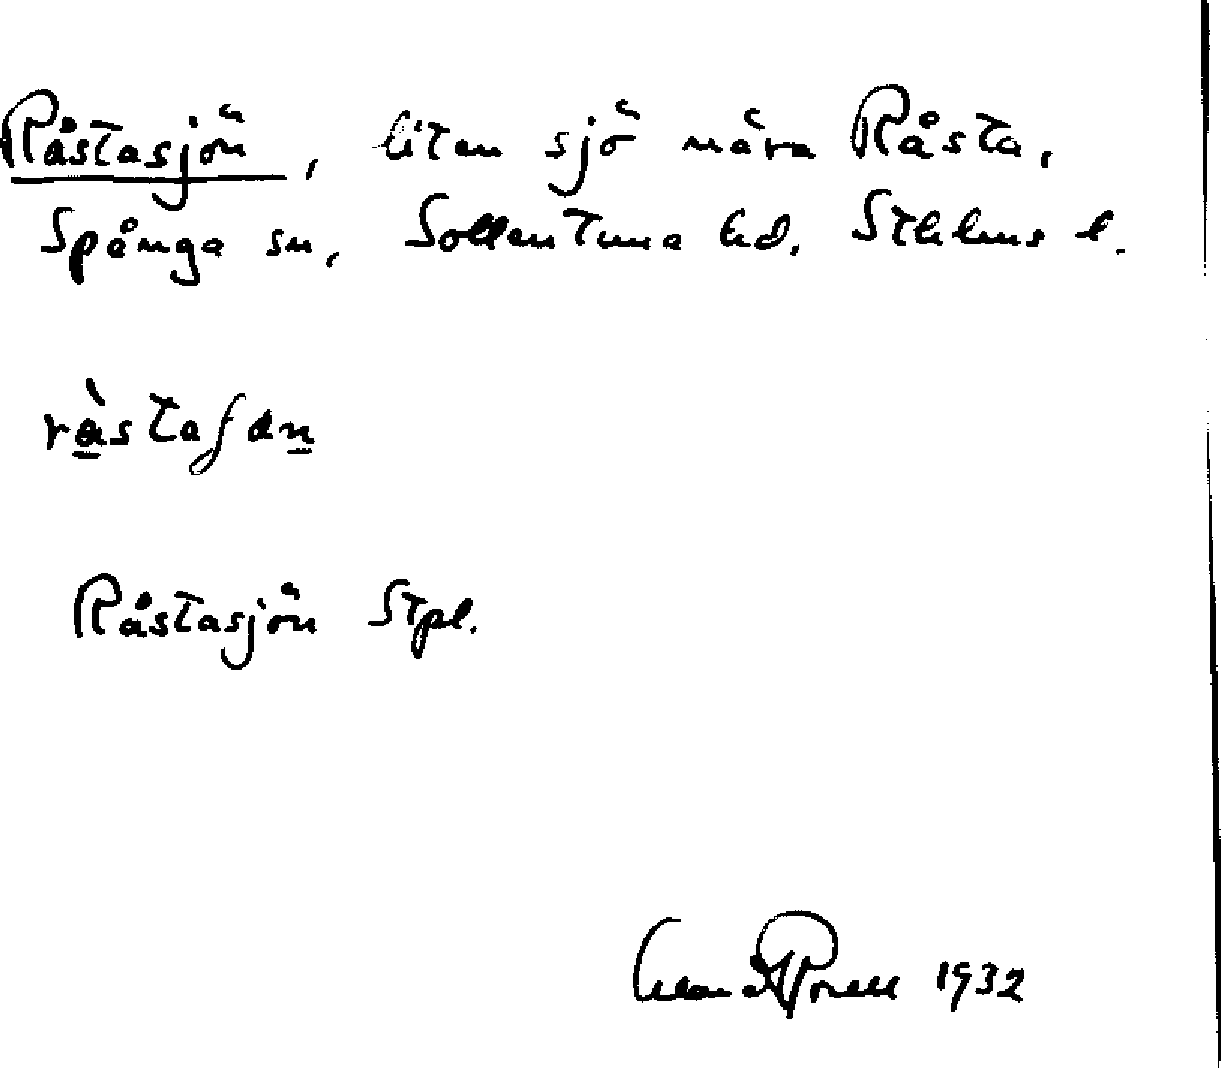 Råstasjön, liten sjö nära Råsta,
Spånga sn, Sollentuna hd. Sthlms l.
råstaʃɵn
Råstasjön Stpl.
1932